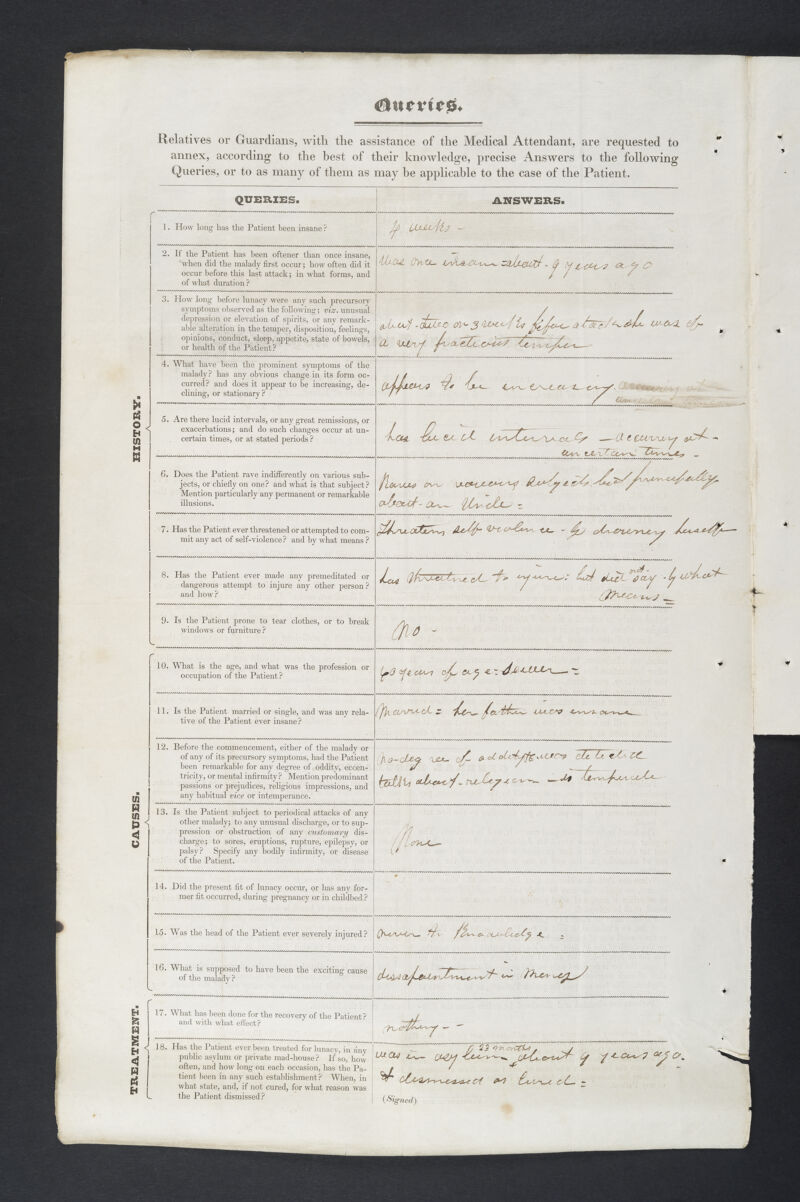 Queries.
Relatives or Guardians, with the assistance of the Medical Attendant, are requested to
annex, according to the best of their knowledge, precise Answers to the following
Queries, or to as many of them as may be applicable to the case of the Patient.
QUERIES.
ANSWERS.
HISTORY.
1. How long has the Patient been insane?
weeks -
2. If the Patient has been oftener than once insane,
when did the malady first occur; how often did it
occur before this last attack; in what forms, and
of what duration?
Was once insane about 9 years ago
3. How long before lunacy were any such precursory
symptoms observed as the following; viz. unusual
depression or elevation of spirits, or any remark-
able alteration in the temper, disposition, feelings,
opinions, conduct, sleep, appetite, state of bowels,
or health of the Patient?
about two or 3 weeks before attack she was of
a very fractious temper
4. What have been the prominent symptoms of the
malady? has any obvious change in its form oc-
curred? and does it appear to be increasing, de-
clining, or stationary?
appears to be increasing
5. Are there lucid intervals, or any great remissions, or
exacerbations; and do such changes occur at un-
certain times, or at stated periods?
has lucid intervals - occurring at -
uncertain times -
6. Does the Patient rave indifferently on various sub-
jects, or chiefly on one? and what is that subject?
Mention particularly any permanent or remarkable
illusions.
Raves on various subjects but principally
about an Uncle =
7. Has the Patient ever threatened or attempted to com-
mit any act of self-violence? and by what means?
Threatens self violence - by drowning herself
8. Has the Patient ever made any premeditated or
dangerous attempt to injure any other person?
and how?
has threatned to injure: but did not say by what
Means =
9. Is the Patient prone to tear clothes, or to break
windows or furniture?
No -
CAUSES.
10. What is the age, and what was the profession or
occupation of the Patient?
years of age =
11. Is the Patient married or single, and was any rela-
tive of the Patient ever insane?
Married = her father was insane
12. Before the commencement, either of the malady or
of any of its precursory symptoms, had the Patient
been remarkable for any degree of oddity, eccen-
tricity, or mental infirmity? Mention predominant
passions or prejudices, religious impressions, and
any habitual vice or intemperance.
no degree of oddity was detected
talks about religion - is temperate
13. Is the Patient subject to periodical attacks of any
other malady; to any unusual discharge, or to sup-
pression or obstruction of any customary dis-
charge; to sores, eruptions, rupture, epilepsy, or
palsy? Specify any bodily infirmity, or disease
of the Patient.
None
14. Did the present fit of lunacy occur, or has any for-
mer fit occurred, during pregnancy or in childbed?
15. Was the head of the Patient ever severely injured?
never to Knowledge =
16. What is supposed to have been the exciting cause
of the malady?
dissapointment in Money
TREATMENT.
17. What has been done for the recovery of the Patient?
and with what effect?
nothing - -
18. Has the Patient ever been treated for lunacy, in any
public asylum or private mad-house? If so, how
often, and how long on each occasion, has the Pa-
tient been in any such establishment? When, in
what state, and, if not cured, for what reason was
the Patient dismissed?
was in asylum months about 9 years ago.
& dismissed as Cured =
(Signed)